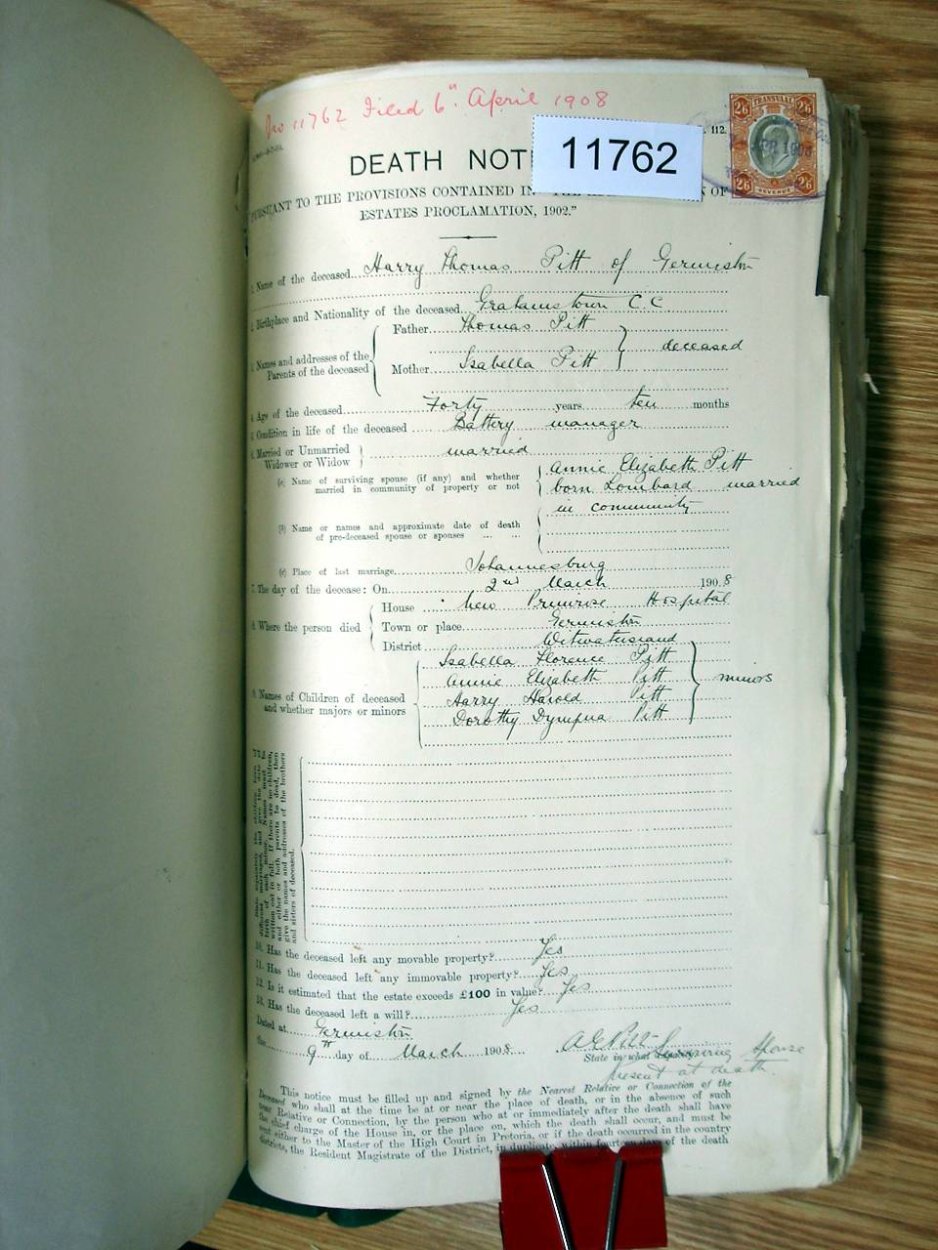 No 11762 Filed 6th April 1908
112.
TRANSVAAL
2/6 2/6
APR 1908
2/6 REVENUE 2/6
DEATH NOT
11762
PURSUANT TO THE PROVISIONS CONTAINED IN "THE N OF
ESTATES PROCLAMATION, 1902."
1. Name of the deceased Harry Thomas Pitt of Germiston
2. Birthplace and Nationality of the deceased Grahamstown C.C
3. Names and addresses of the Parents of the deceased
Father Thomas Pitt
deceased
Mother Isabella Pitt
4. Age of the deceased Forty years ten months
5. Condition in life of the deceased Battery manager
6. Married or Unmarried married
Widower or Widow
(a) Name of surviving spouse (if any) and whether married in community of property or not
Annie Elizabeth Pitt
born Lombard married
in community
(b) Name or names and approximate date of death
of pre-deceased spouse or spouses
(c) Place of last marriage Johannesburg
7. The day of the decease: On 2nd March 1908
8. Where the person died
House New Primrose Hospital
Town or place Germiston
District Witwatersrand
9. Names of Children of deceased and whether majors or minors
Isabella Florence Pitt
Annie Elizabeth Pitt
Harry Harold Pitt
Dorothy Dympna Pitt
minors
written out in full. If there are no children,
and either or both parents be dead, then
give the names and addresses of the brothers
and sisters of deceased.
10. Has the deceased left any movable property? Yes
11. Has the deceased left any immovable property? Yes
12. Is it estimated that the estate exceeds £100 in value? Yes
13. Has the deceased left a will? Yes
Dated at Germiston
the 9th day of March 1908. A E Pitt
State in what Surviving Spouse
present at death.
This notice must be filled up and signed by the Nearest Relative or Connection of the
Deceased who shall at the time be at or near the place of death, or in the absence of such
near Relative or Connection, by the person who at or immediately after the death shall have
the chief charge of the House in, or the place on, which the death shall occur, and must be
sent either to the Master of the High Court in Pretoria, or if the death occurred in the country
districts, the Resident Magistrate of the District, in duplicate within fourteen days of the death